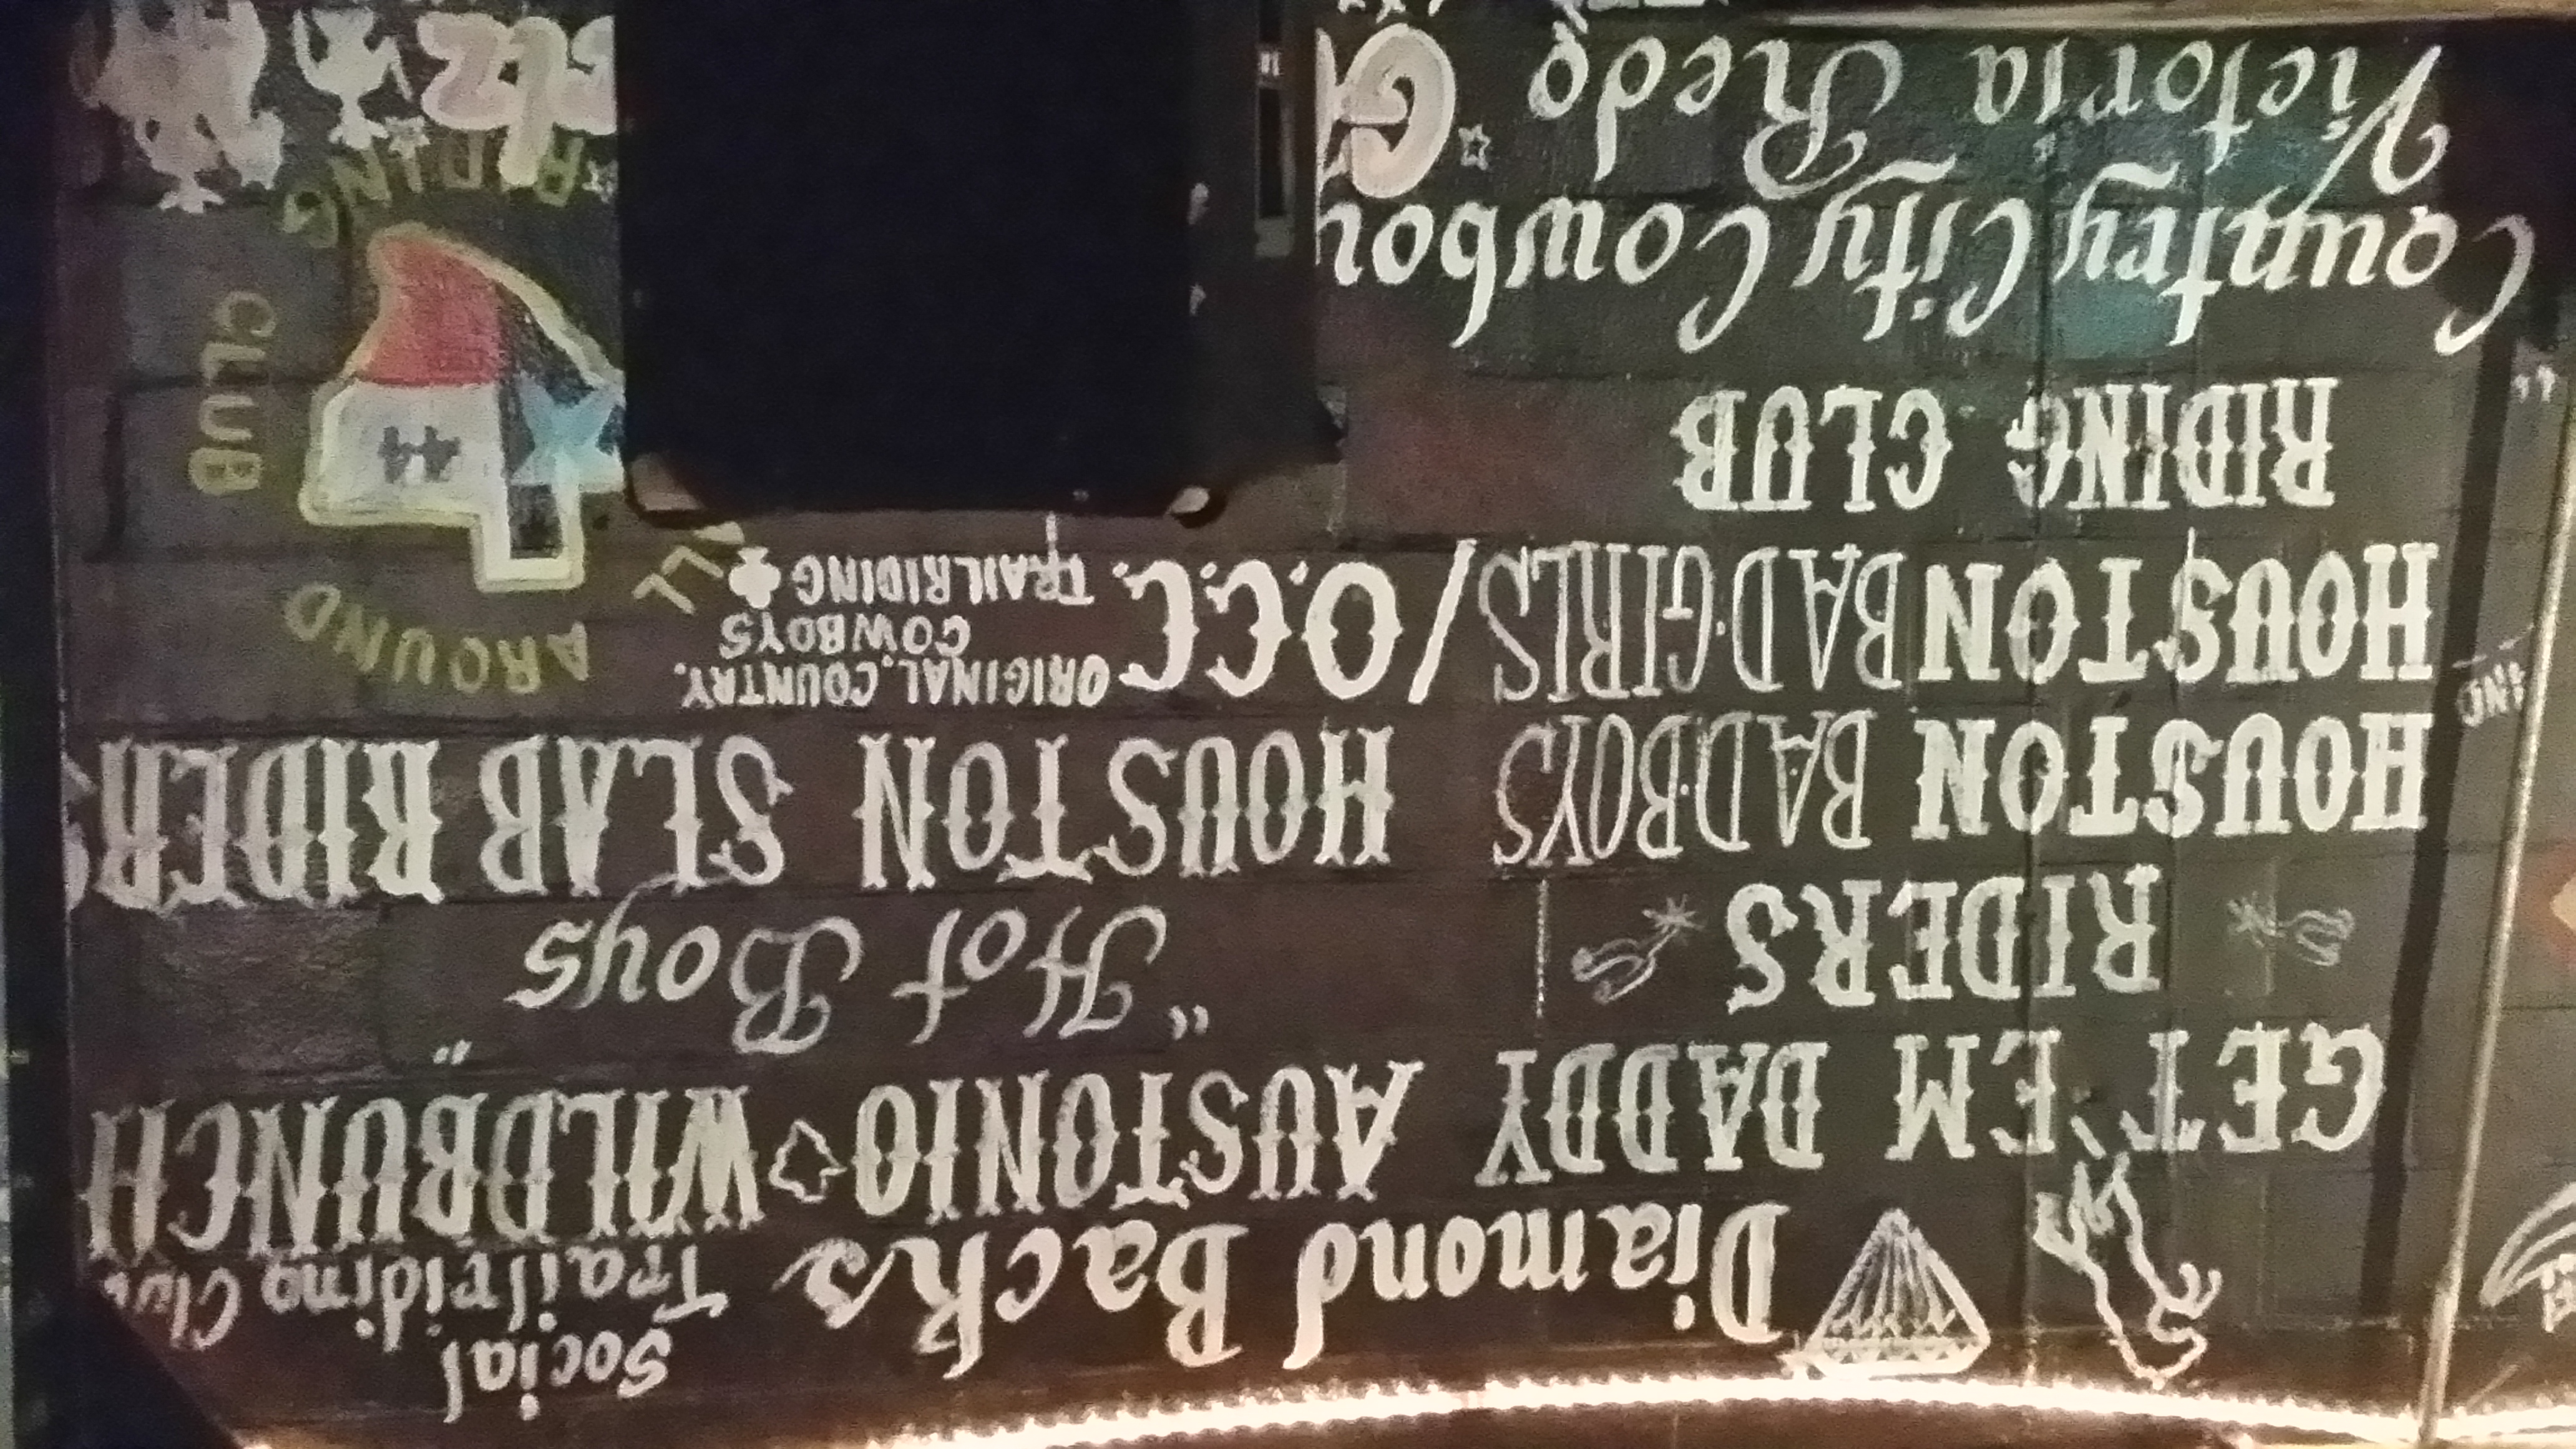 Diamond Backs Social
Trailriding
GET 'EM DADDY AUSTONIO WILDBUNCH
RIDERS "Hot Boys"
HOUSTON BAD-BOYS HOUSTON SLAB RIDER
HOUSTON BAD-GIRLS / O.C.C. ORIGINAL.COUNTRY.
COWBOYS
TRAILRIDING
RIDING CLUB
ALL AROUND
44
RIDING CLUB
Country City
Victoria